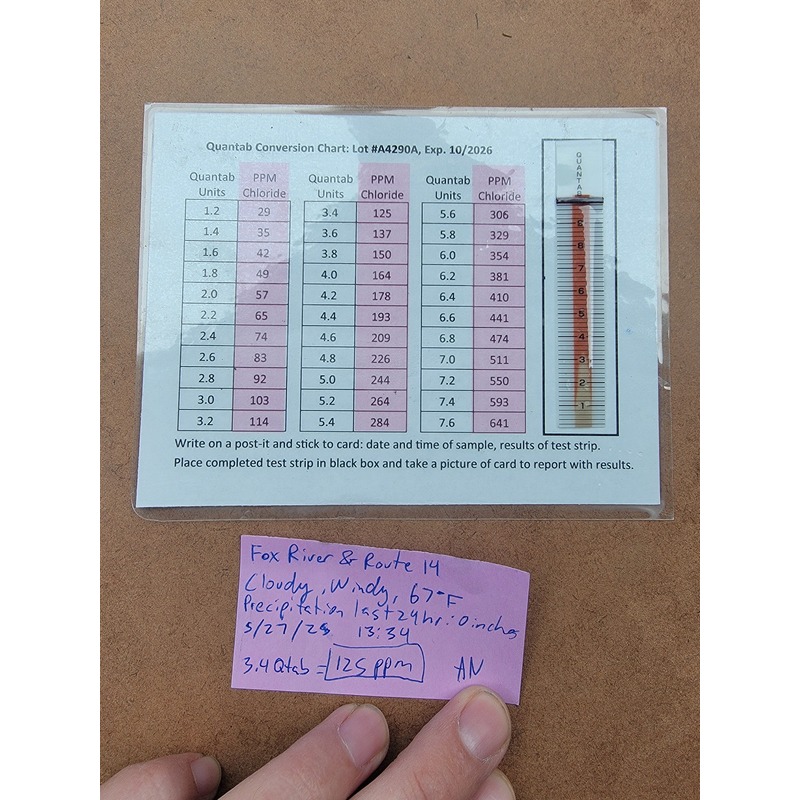 Quantab Conversion Chart: Lot #A4290A, Exp. 10/2026
Quantab Units PPM Chloride Quantab Units PPM Chloride Quantab Units PPM Chloride
1.2 29 3.4 125 5.6 306
1.4 35 3.6 137 5.8 329
1.6 42 3.8 150 6.0 354
1.8 49 4.0 164 6.2 381
2.0 57 4.2 178 6.4 410
2.2 65 4.4 193 6.6 441
2.4 74 4.6 209 6.8 474
2.6 83 4.8 226 7.0 511
2.8 92 5.0 244 7.2 550
3.0 103 5.2 264 7.4 593
3.2 114 5.4 284 7.6 641
QUANTAB
9
8
7
6
5
4
3
2
1
Write on a post-it and stick to card: date and time of sample, results of test strip.
Place completed test strip in black box and take a picture of card to report with results.
Fox River & Route 14
Cloudy, Windy, 67°F
Precipitation last 24hr.: 0 inches
5/27/25 13:34
3.4 Qtab = 125 ppm AN